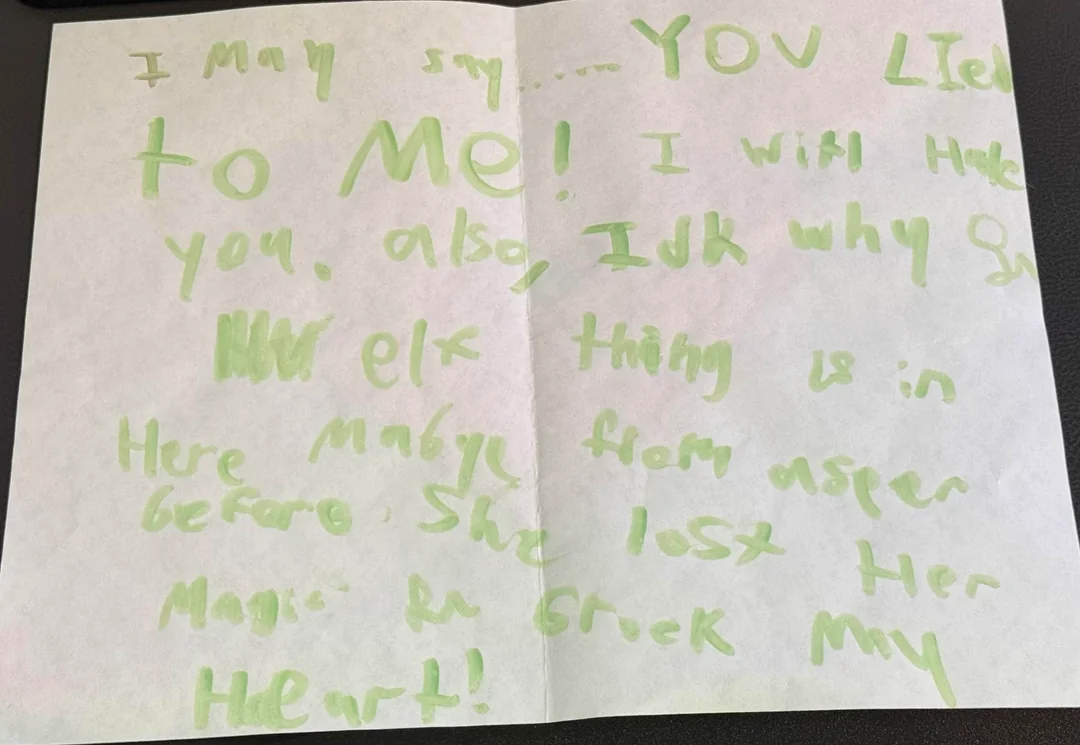 I May say..... YOU LIed
to Me! I will Hate
you. also, Idk why
elx thing is in
Here Mabye from asper
before she lost Her
Magic Brock May
Heart!